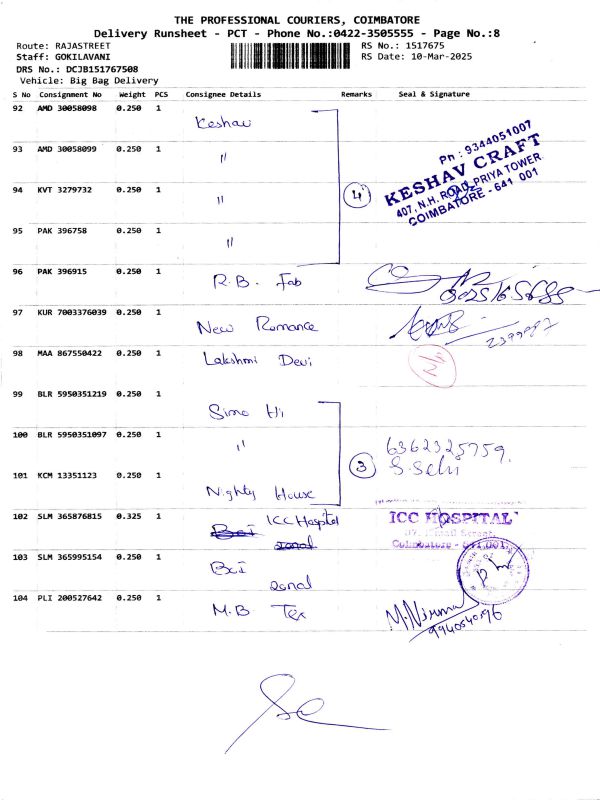 THE PROFESSIONAL COURIERS, COIMBATORE
Delivery Runsheet - PCT - Phone No.:0422-3505555 - Page No.:8
Route: RAJASTREET RS No.: 1517675
Staff: GOKILAVANI RS Date: 10-Mar-2025
DRS No.: DCJB151767508
Vehicle: Big Bag Delivery
S No Consignment No Weight PCS Consignee Details Remarks Seal & Signature
92 AMD 30058098 0.250 1 Keshav
Pn : 9344051007
93 AMD 30058099 0.250 1 "
KESHAV CRAFT
94 KVT 3279732 0.250 1 " 4
407, N.H. ROAD, PRIYA TOWER
COIMBATORE - 641 001
95 PAK 396758 0.250 1 "
96 PAK 396915 0.250 1 R.B. Fab
97 KUR 7003376039 0.250 1 New Romance
98 MAA 867550422 0.250 1 Lakshmi Devi
99 BLR 5950351219 0.250 1 Simo Hi
100 BLR 5950351097 0.250 1 "
6362325759.
101 KCM 13351123 0.250 1 Nighty House 3
102 SLM 365876815 0.325 1 ICC Hospital
ICC HOSPITAL
Coimbatore - 641 001
103 SLM 365995154 0.250 1 BCI
zonal
104 PLI 200527642 0.250 1 M.B Tex
M.Nirma